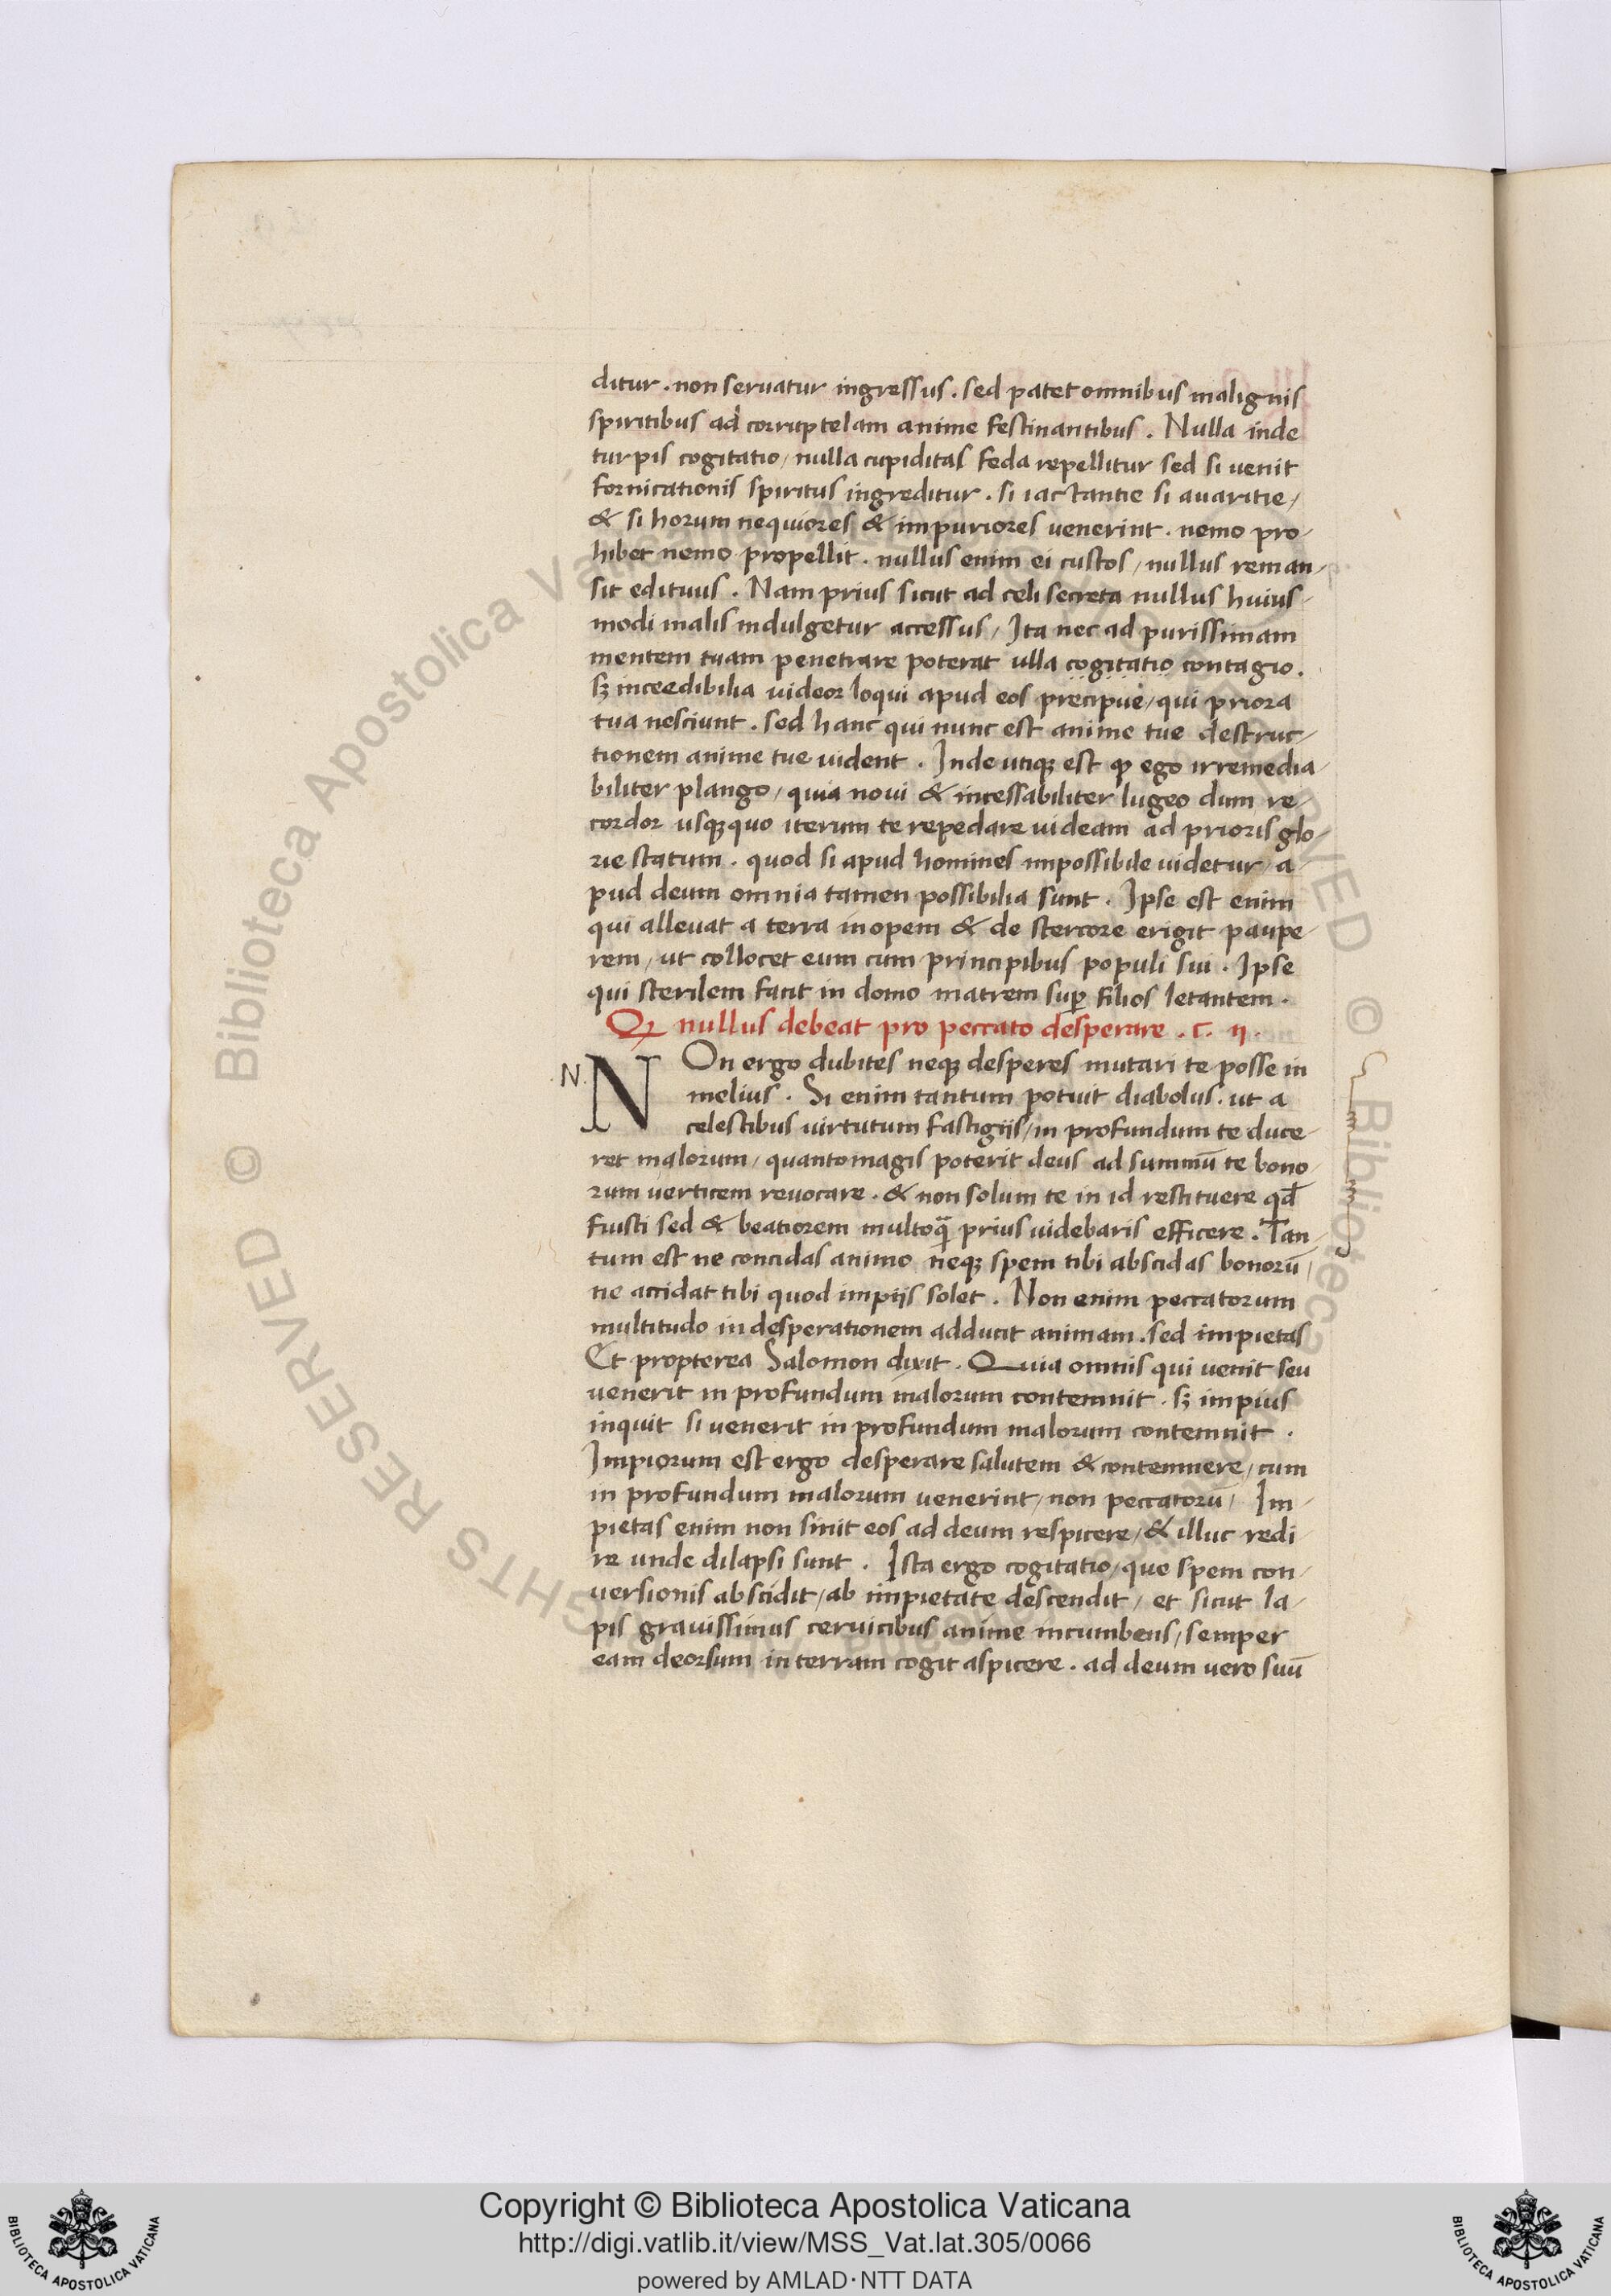 ditur . non seruatur ingressus . sed patet omnibus malignis
spiritibus ad corruptelam anime festinantibus . Nulla inde
turpis cogitatio / nulla cupiditas feda repellitur sed si uenit
fornicationis spiritus ingreditur . si iactantie si auaritie /
& si horum nequiores & impuriores uenerint . nemo pro-
hibet nemo propellit . nullus enim ei custos / nullus reman-
sit edituus . Nam prius sicut ad celi secreta nullus huius-
modi malis indulgetur accessus / Ita nec ad purissimam
mentem tuam penetrare poterat ulla cogitatio contagio .
sꝫ incredibilia uideor loqui apud eos precipue / qui priora
tua nesciunt . sed hanc qui nunc est anime tue destruc-
tionem anime tue uident . Inde utiqꝫ est ꝙ ego irremedia-
biliter plango / quia noui & incessabiliter lugeo dum re-
cordor usqꝫquo iterum te repedare uideam ad prioris glo-
rie statum . quod si apud homines impossibile uidetur / a-
pud deum omnia tamen possibilia sunt . Ipse est enim
qui alleuat a terra inopem & de stercore erigit paupe-
rem / ut collocet eum cum principibus populi sui . Ipse
qui sterilem facit in domo matrem suꝑ filios letantem .
Q nullus debeat pro peccato desperare . c . ii .
N. NOn ergo dubites neqꝫ desperes mutari te posse in
melius . Si enim tantum potuit diabolus . ut a
celestibus uirtutum fastigiis / in profundum te duce-
ret malorum / quantomagis poterit deus ad summū te bono-
rum uerticem reuocare . & non solum te in id restituere qđ
fuisti sed & beatiorem multoq̄ prius uidebaris efficere . Tan-
tum est ne concidas animo neqꝫ spem tibi abscidas bonorū /
ne accidat tibi quod impiis solet . Non enim peccatorum
multitudo in desperationem adducit animam . sed impietas
Et propterea Salomon dixit . Quia omnis qui uenit seu
uenerit in profundum malorum contemnit . sꝫ impius
inquit si uenerit in profundum malorum contemnit .
Impiorum est ergo desperare salutem & contemnere / cum
in profundum malorum uenerint / non peccatorū / Im-
pietas enim non sinit eos ad deum respicere / & illuc redi-
re unde dilapsi sunt . Ista ergo cogitatio / que spem con-
uersionis abscidit / ab impietate descendit / et sicut la-
pis grauissimus ceruicibus anime incumbens / semper
eam deorsum in terram cogit aspicere . ad deum uero suū
© Biblioteca Apostolica Vaticana
RIGHTS RESERVED © Biblioteca Apostolica Vaticana
Copyright © Biblioteca Apostolica Vaticana
http://digi.vatlib.it/view/MSS_Vat.lat.305/0066
powered by AMLAD·NTT DATA
BIBLIOTECA APOSTOLICA VATICANA
BIBLIOTECA APOSTOLICA VATICANA